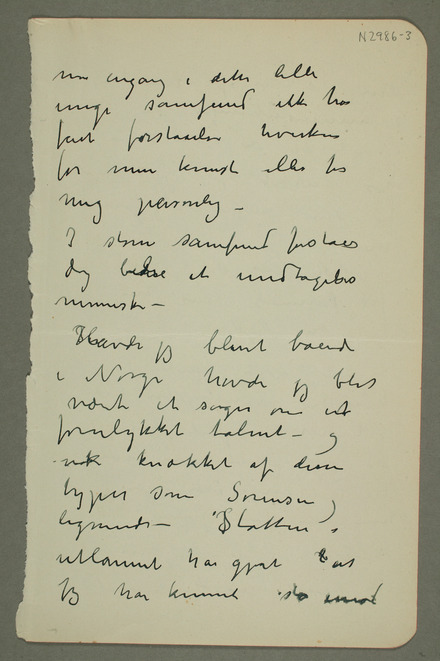 N2986-3
nu engang i dette lille
unge samfund ikke har
fået forståelse hverken
for min kunst eller for
mig personlig –
I store samfund forstaaes
dog bedre et undtagelses
menneske –
Havde jeg blevt boende
i Norge havde jeg blot
været et sagn om et
forulykket talent – og
nok knækket af disse
typer som Sørensen og
lignende –
utlannet har gjort at
jeg har kunnet staa imod